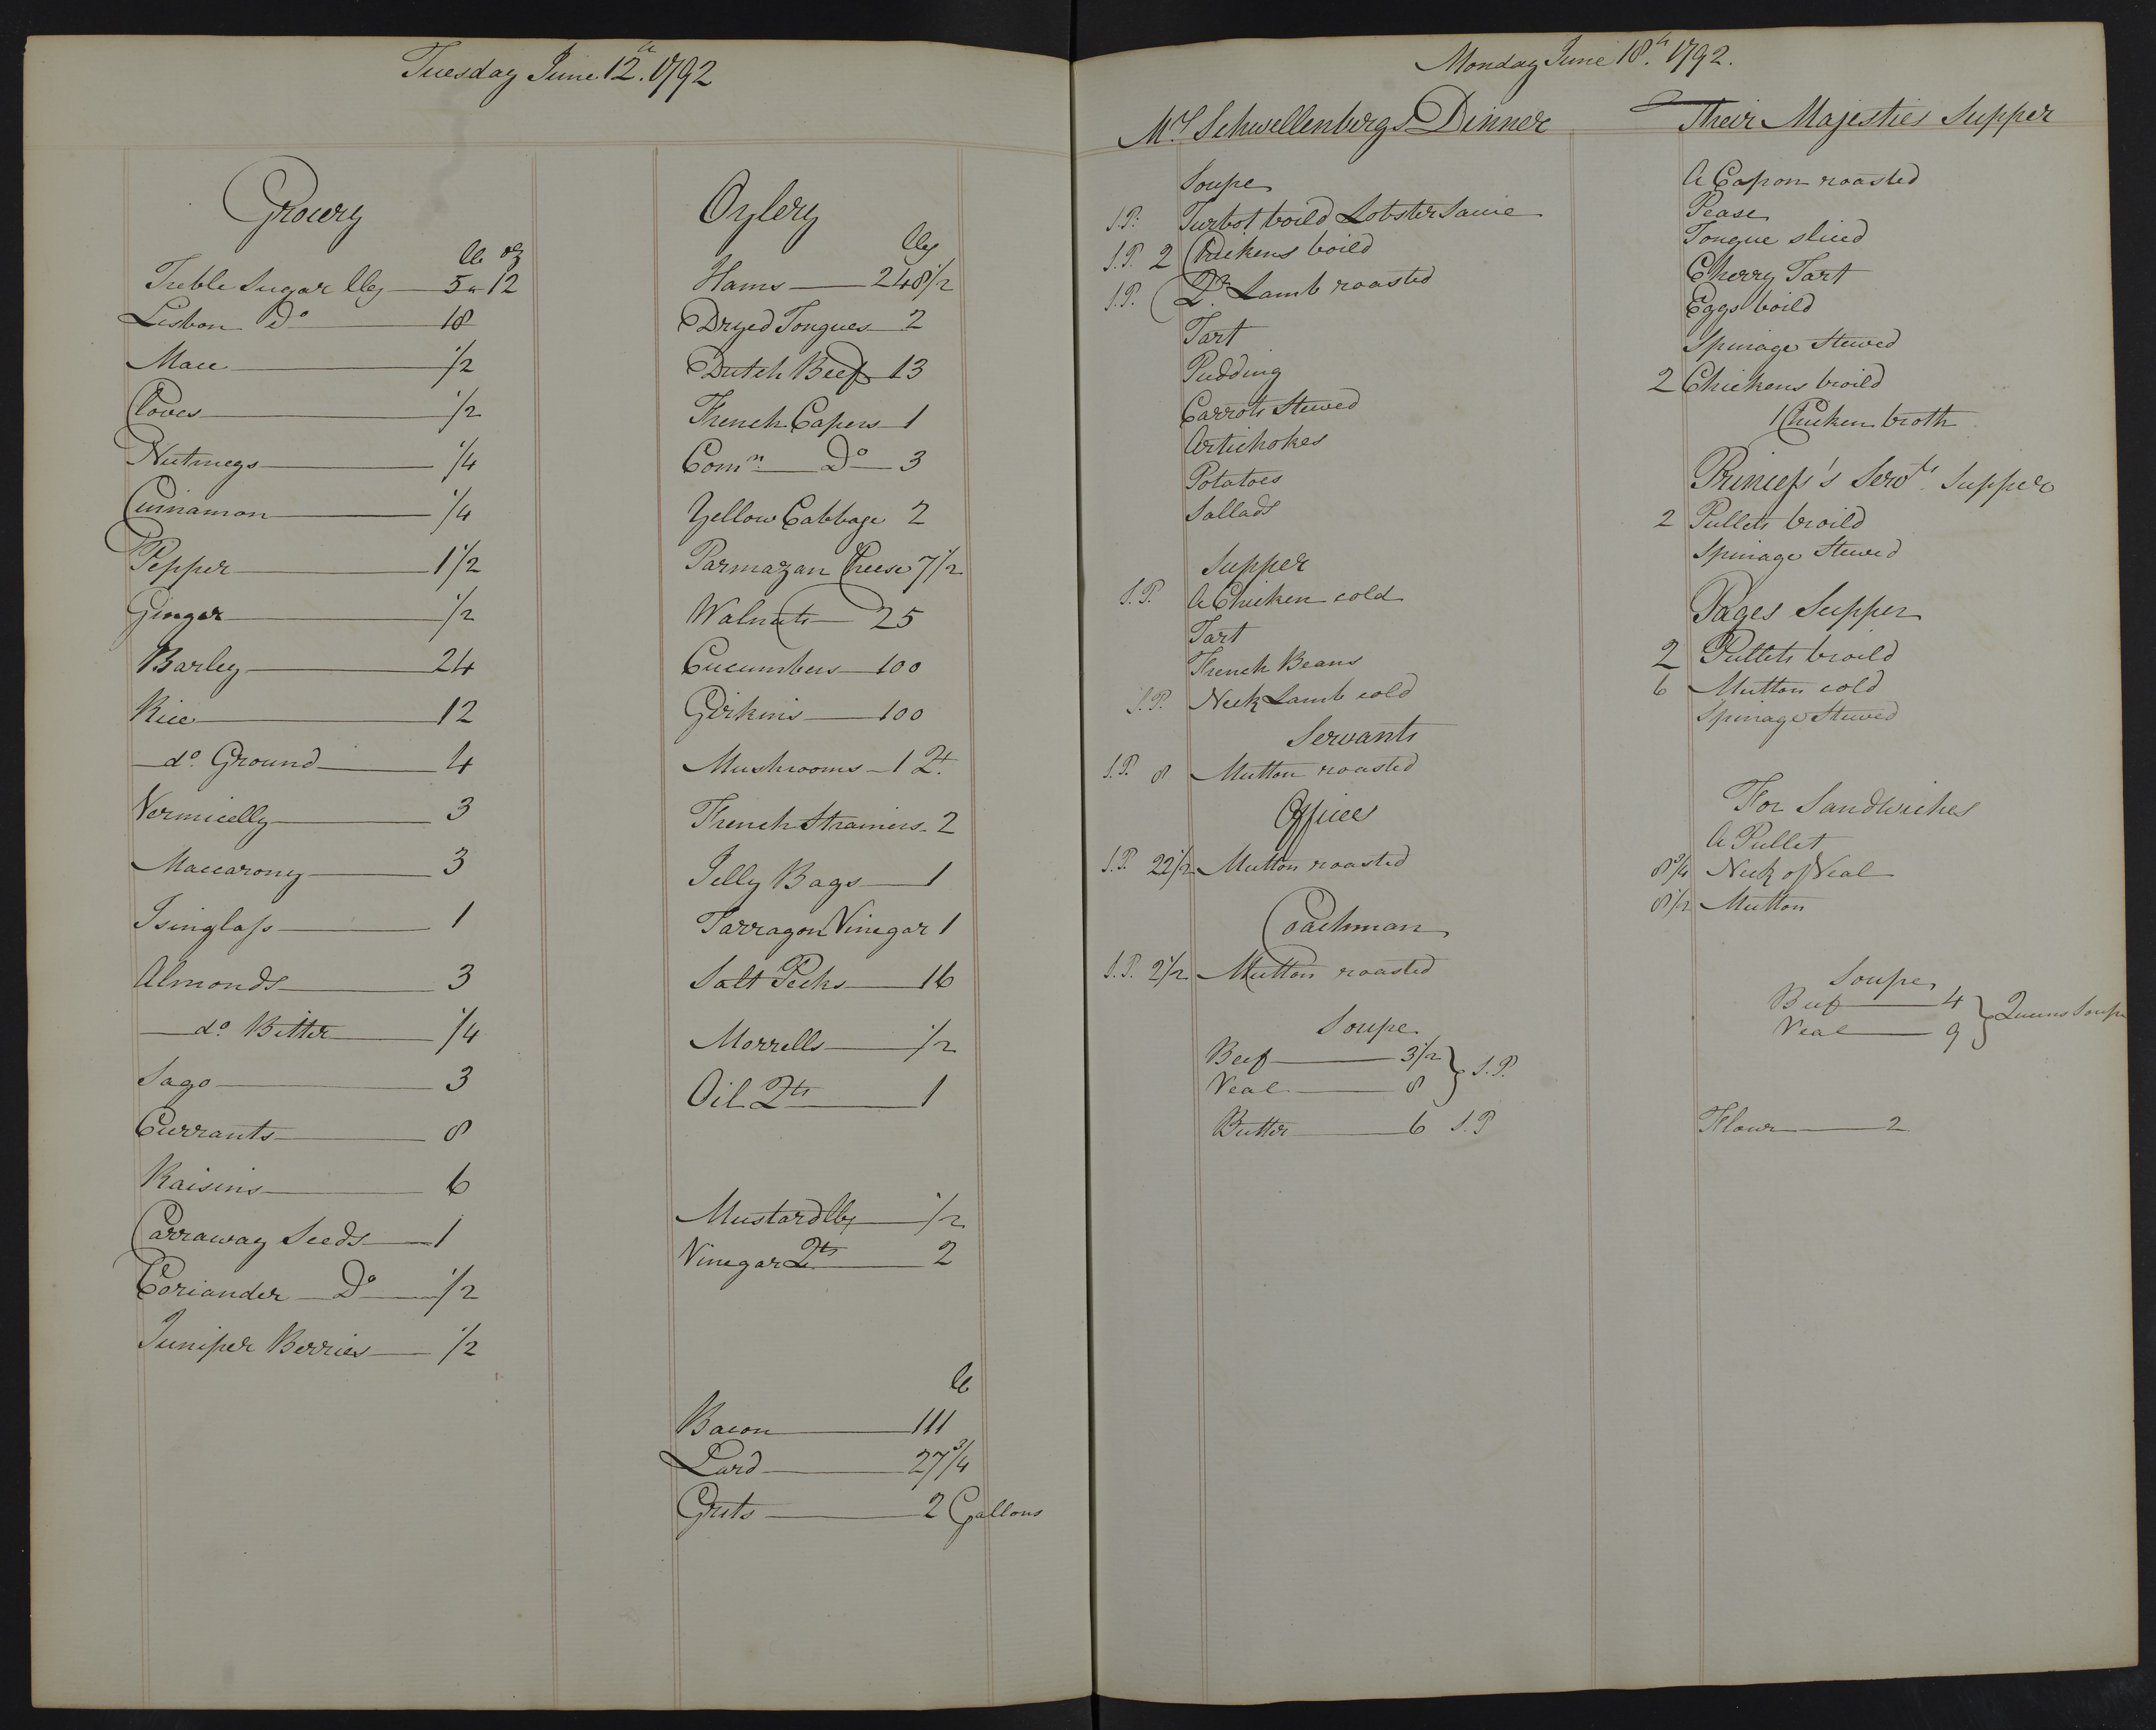 Tuesday June 12th. 1792
Grocery
lb oz
Treble Sugar lbs 5 " 12
Lisbon Do 18
Mace 1/2
Cloves 1/2
Nutmegs 1/4
Cinnamon 1/4
Pepper 1 1/2
Ginger 1/2
Barley 24
Rice 12
do. Ground 4
Vermicelly 3
Maccarony 3
Isinglass 1
Almonds 3
do. Bitter 1/4
Sago 3
Currants 8
Raisins 6
Carraway Seeds 1
Coriander Do 1/2
Juniper Berries 1/2
Oylery
lbs
Hams 248 1/2
Dryed Tongues 2
Dutch Beef 13
French Capers 1
Comn. Do 3
Yellow Cabbage 2
Parmazan Cheese 7 1/2
Walnuts 25
Cucumbers 100
Girkins 100
Mushrooms 1 Qt.
French Strainers 2
Jelly Bags 1
Tarragon Vinegar 1
Salt Pecks 16
Morrells 1/2
Oil Qts 1
Mustard lbs 1/2
Vinegar Qts 2
lb
Bacon 111
Lard 27 3/4
Gruts 2 Gallons
Monday June 18th. 1792.
Mrs Schwellenbergs Dinner
Soupe
S.P. Turbot boild Lobster Sauce
S.P. 2 Chickens boild
S.P. Qr. Lamb roasted
Tart
Pudding
Carrots Stewed
Artichokes
Potatoes
Sallad
Supper
S.P. A Chicken cold
Tart
French Beans
S.P. Neck Lamb cold
Servants
S.P. 8 Mutton roasted
Offices
S.P. 22 1/2 Mutton roasted
Coachman
S.P. 2 1/2 Mutton roasted
Soupe
Beef 3 1/2 } S.P.
Veal 8
Butter 6 S.P
Their Majesties Supper
A Capon roasted
Pease
Tongue sliced
Cherry Tart
Eggs boild
Spinage Stewed
2 Chickens broild
1 Chicken broth
Princess's Servts. Supper
2 Pullets broild
Spinage Stewed
Pages Supper
2 Pullets broild
6 Mutton cold
Spinage Stewed
For Sandwiches
A Pullet
8 3/4 Neck of Veal
8 1/2 Mutton
Soupe
Beef 4 } Queens Soupe
Veal 9
Flour 2